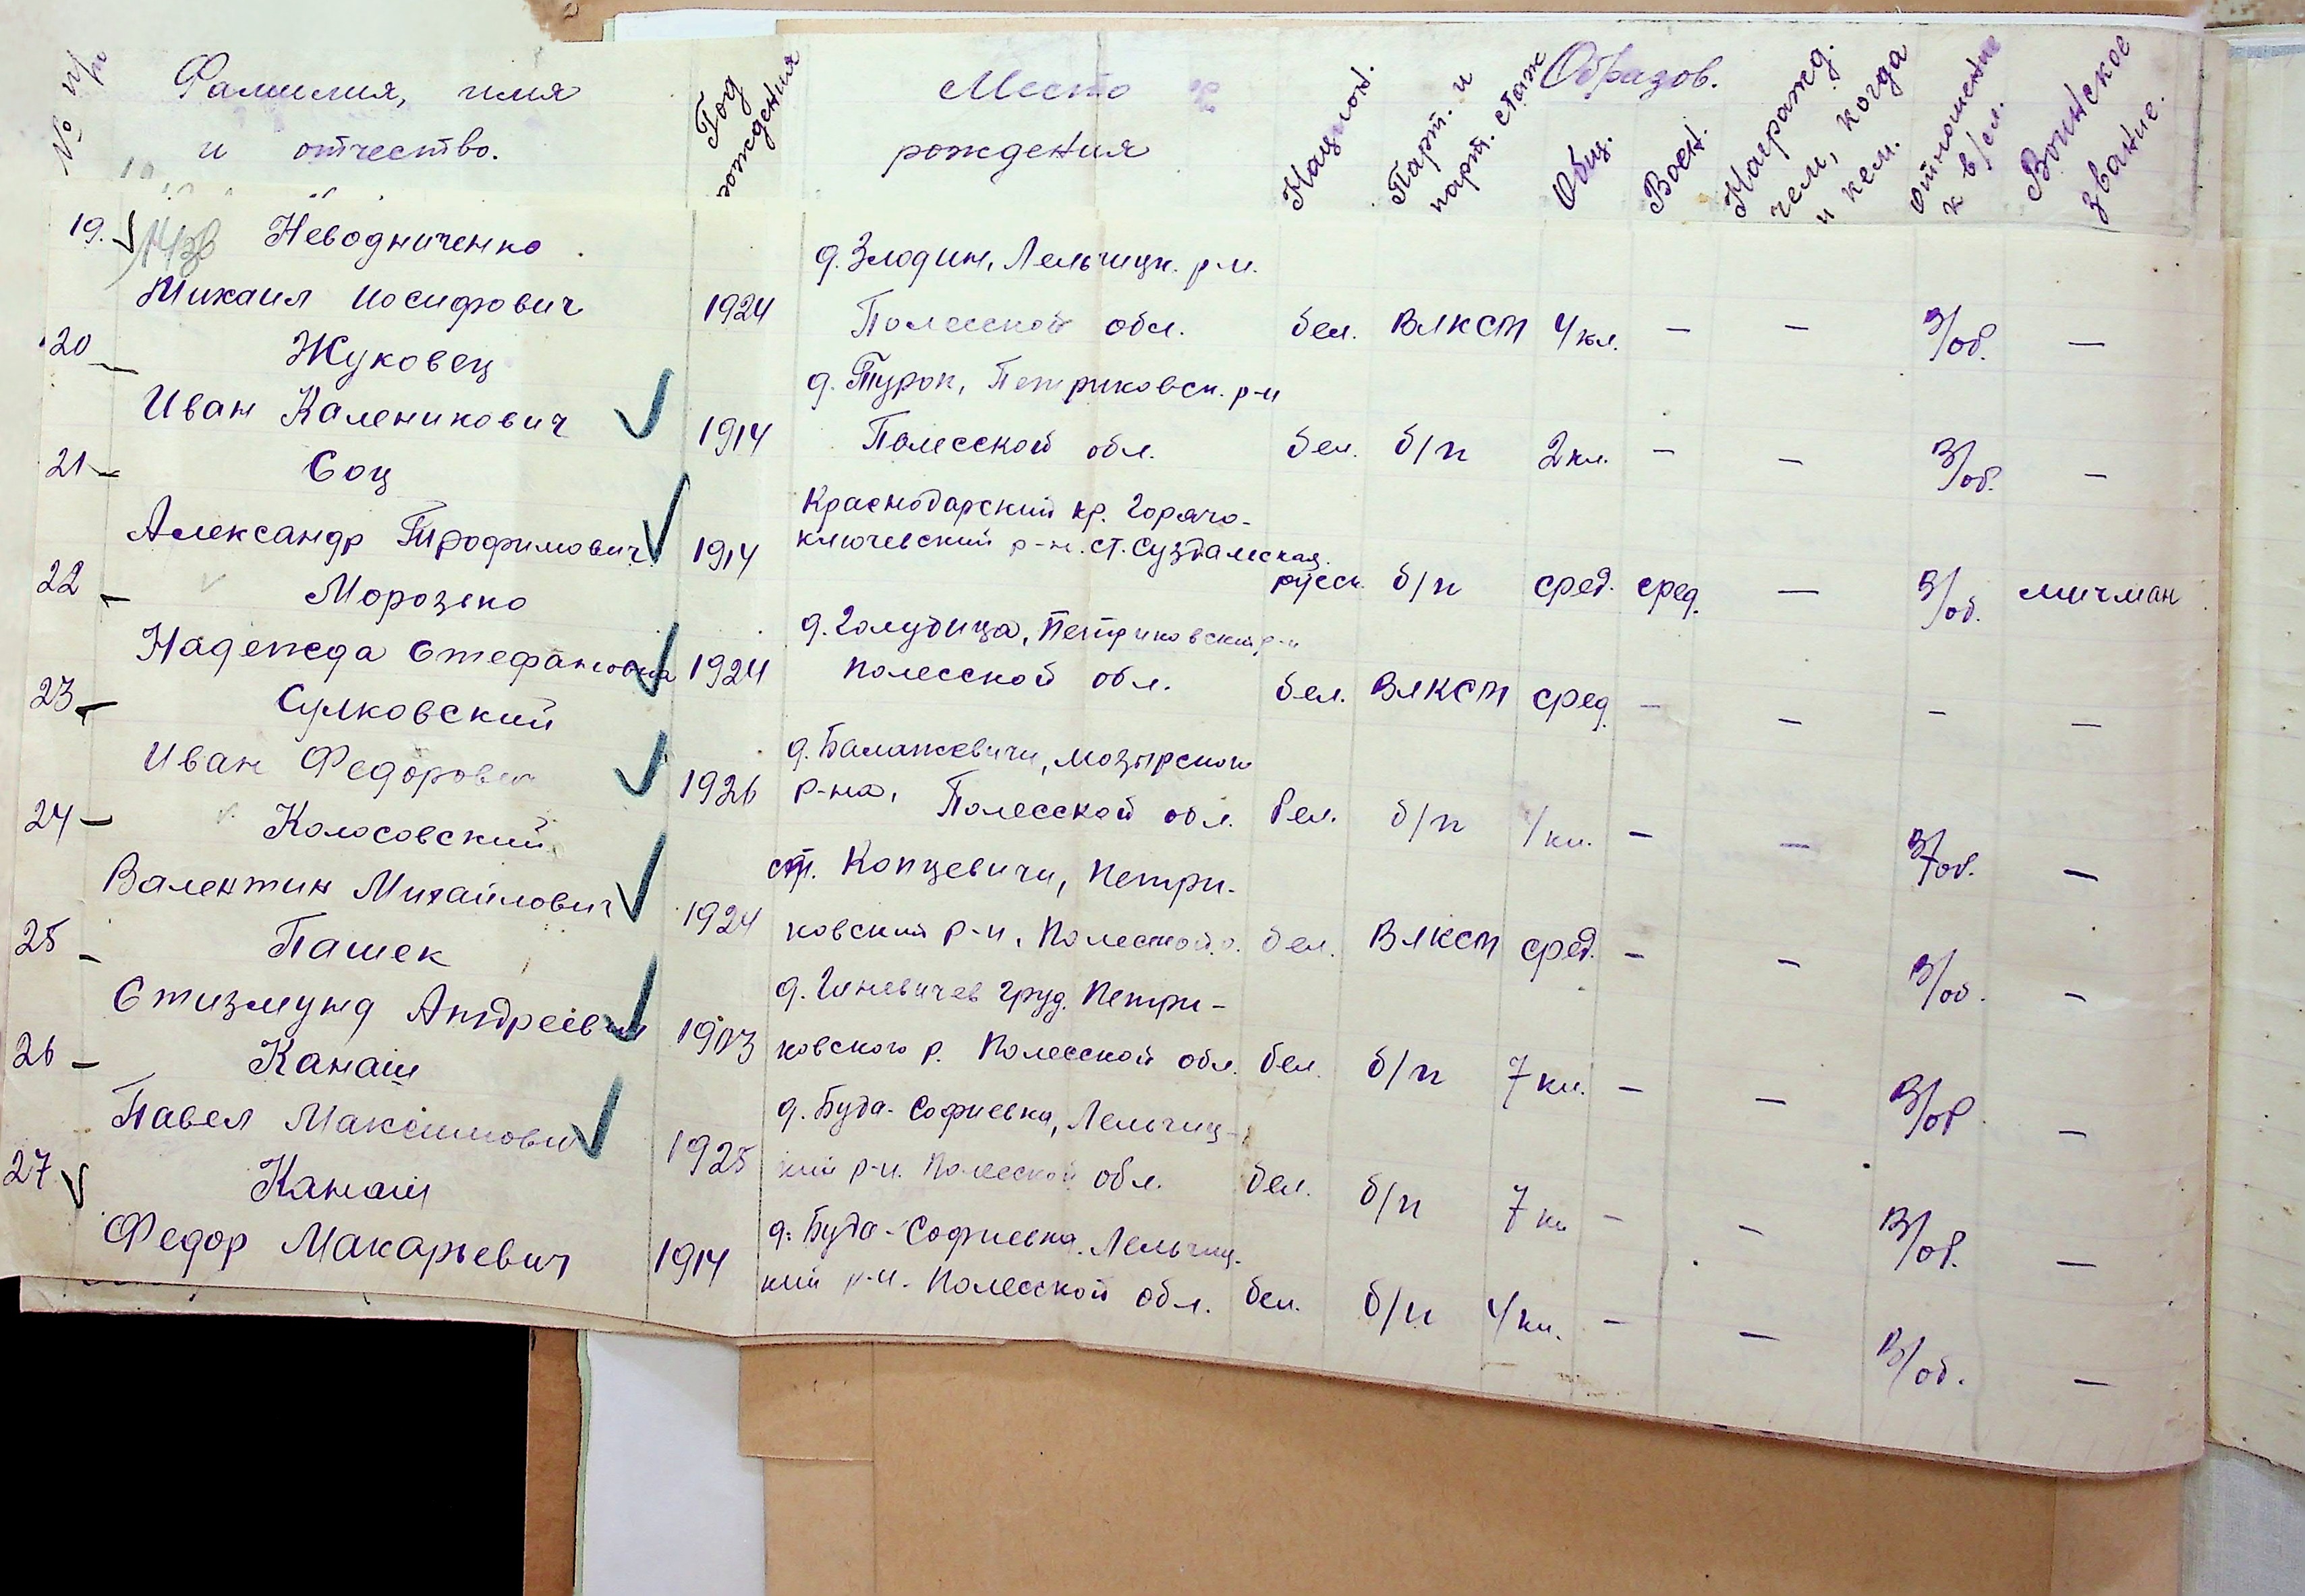 № п/п Фамилия, имя и отчество. Год рождения Место рождения Национ. Парт. и парт. стаж Образов. Общ. Воен. Награжд. чем, когда и кем. отношение к в/сл. Воинское звание.
19. Неводниченко д. Злодин, Лельчицк. р-н.
Михаил Иосифович 1924 Полесской обл. бел. ВЛКСМ 4 кл. — — В/об. —
20 Жуковец д. Туров, Петриковск. р-н
Иван Каленикович 1914 Полесской обл. бел. б/п 2 кл. — — В/об. —
21 Соц Краснодарский кр. Горячо-
Александр Трофимович 1914 ключевский р-н. ст. Суздалеская русск. б/п сред. сред. — В/об. мичман
22 Морозько д. Голубица, Петриковский р-н
Надежда Стефановна 1924 Полесской обл. бел. ВЛКСМ сред. — — — —
23 Сулковский д. Балажевичи, Мозырского
Иван Федорович 1926 р-на, Полесской обл. бел. б/п кл. — — В/об. —
24 Колосовский ст. Копцевичи, Петри-
Валентин Михайлович 1924 ковский р-н, Полесской о. бел. ВЛКСМ сред. — — В/об. —
25 Пашек д. груд. Петри-
Стизмунд Андреевич 1903 ковского р. Полесской обл. бел. б/п 7 кл. — — В/об —
26 Канаш д. Буда-Софиевка, Лельчиц-
Павел Максимович 1925 кий р-н. Полесской обл. бел. б/п 7 кл — — В/об. —
27 Канаш д. Буда-Софиевка. Лельчиц-
Федор Макарьевич 1914 кий р-н. Полесской обл. бел. б/п 4 кл. — — В/об. —